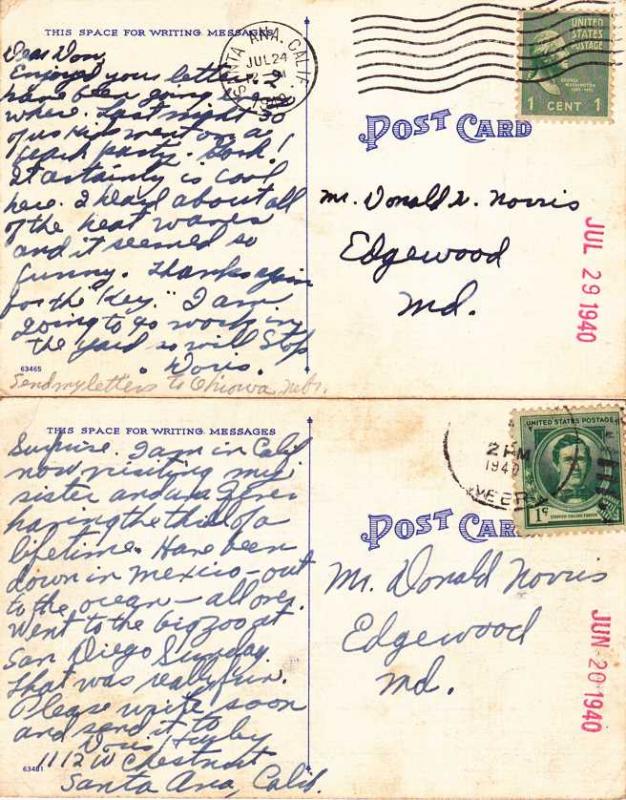 THIS SPACE FOR WRITING MESSAGES
Dear Don,
Enjoyed your letter. I
have been going
where. Last night 30
of us kids went on a
beach party. Gosh!
It certainly is cool
here. I heard about all
of the heat waves
and it seemed so
funny. Thanks again
for the "Key." I am
going to go work in
the yard so will stop
. Doris.
63465
Send my letters to Chiowa, Nebr.
SANTA ANA, CALIF.
JUL 24
2 PM
1940
UNITED
STATES
POSTAGE
GEORGE
WASHINGTON
1 CENT 1
POST CARD
Mr. Donald L. Norris
Edgewood
Md.
JUL 29 1940
THIS SPACE FOR WRITING MESSAGES
Surprise. I am in Calif
now visiting my
sister and am
having the thrill of a
lifetime. Have been
down in Mexico - out
to the ocean - all over.
Went to the big zoo at
San Diego Sunday.
That was really fun.
Please write soon
and send it to
Doris
1112 W Chestnut
Santa Ana, Calif.
63481
2 PM
1940
UNITED STATES POSTAGE
1¢
STEPHEN COLLINS FOSTER
POST CARD
Mr. Donald Norris
Edgewood
Md.
JUN 20 1940